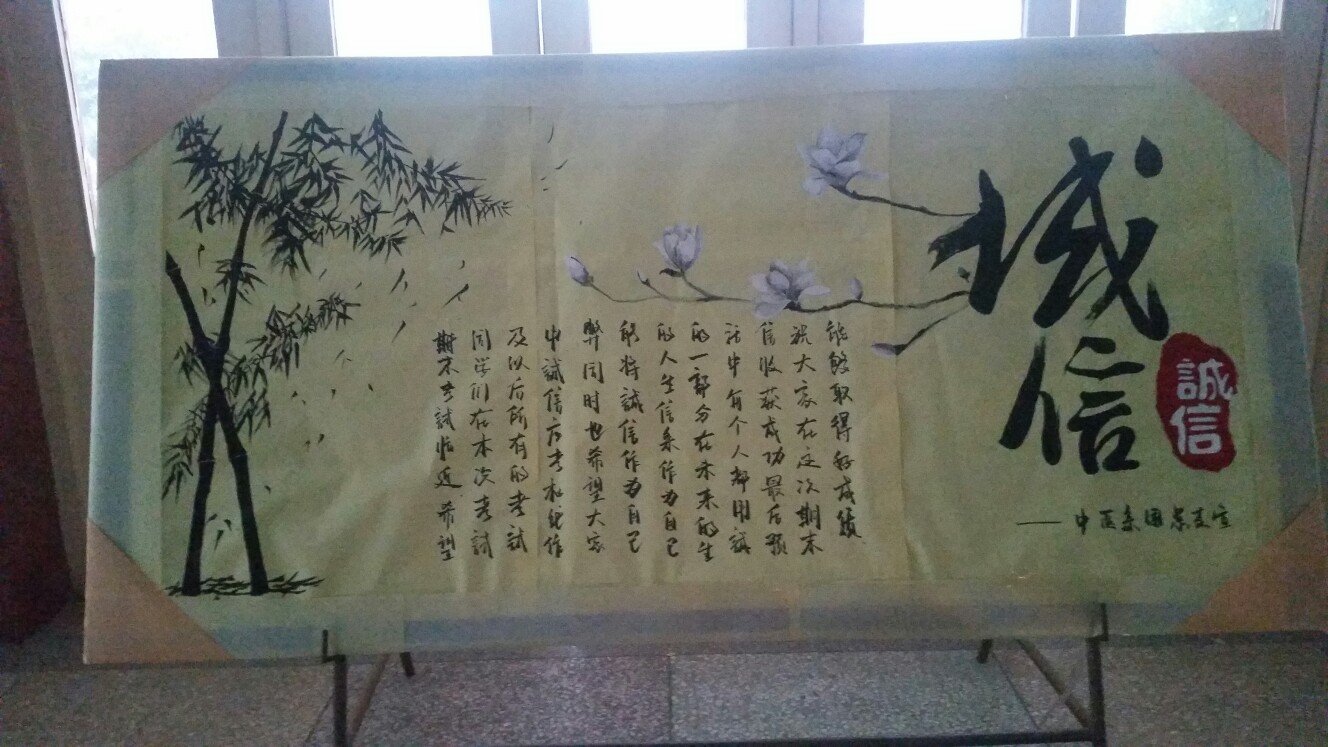 诚信
誠信
——中医系团总支宣
期末考試临近 希望
同学们在本次考試
及以后所有的考試
中誠信应考杜绝作
弊同时也希望大家
能将誠信作为自己
的人生信条作为自己
的一部分在未来的生
活中每个人都用誠
信收获成功最后预
祝大家在这次期末
能够取得好成绩